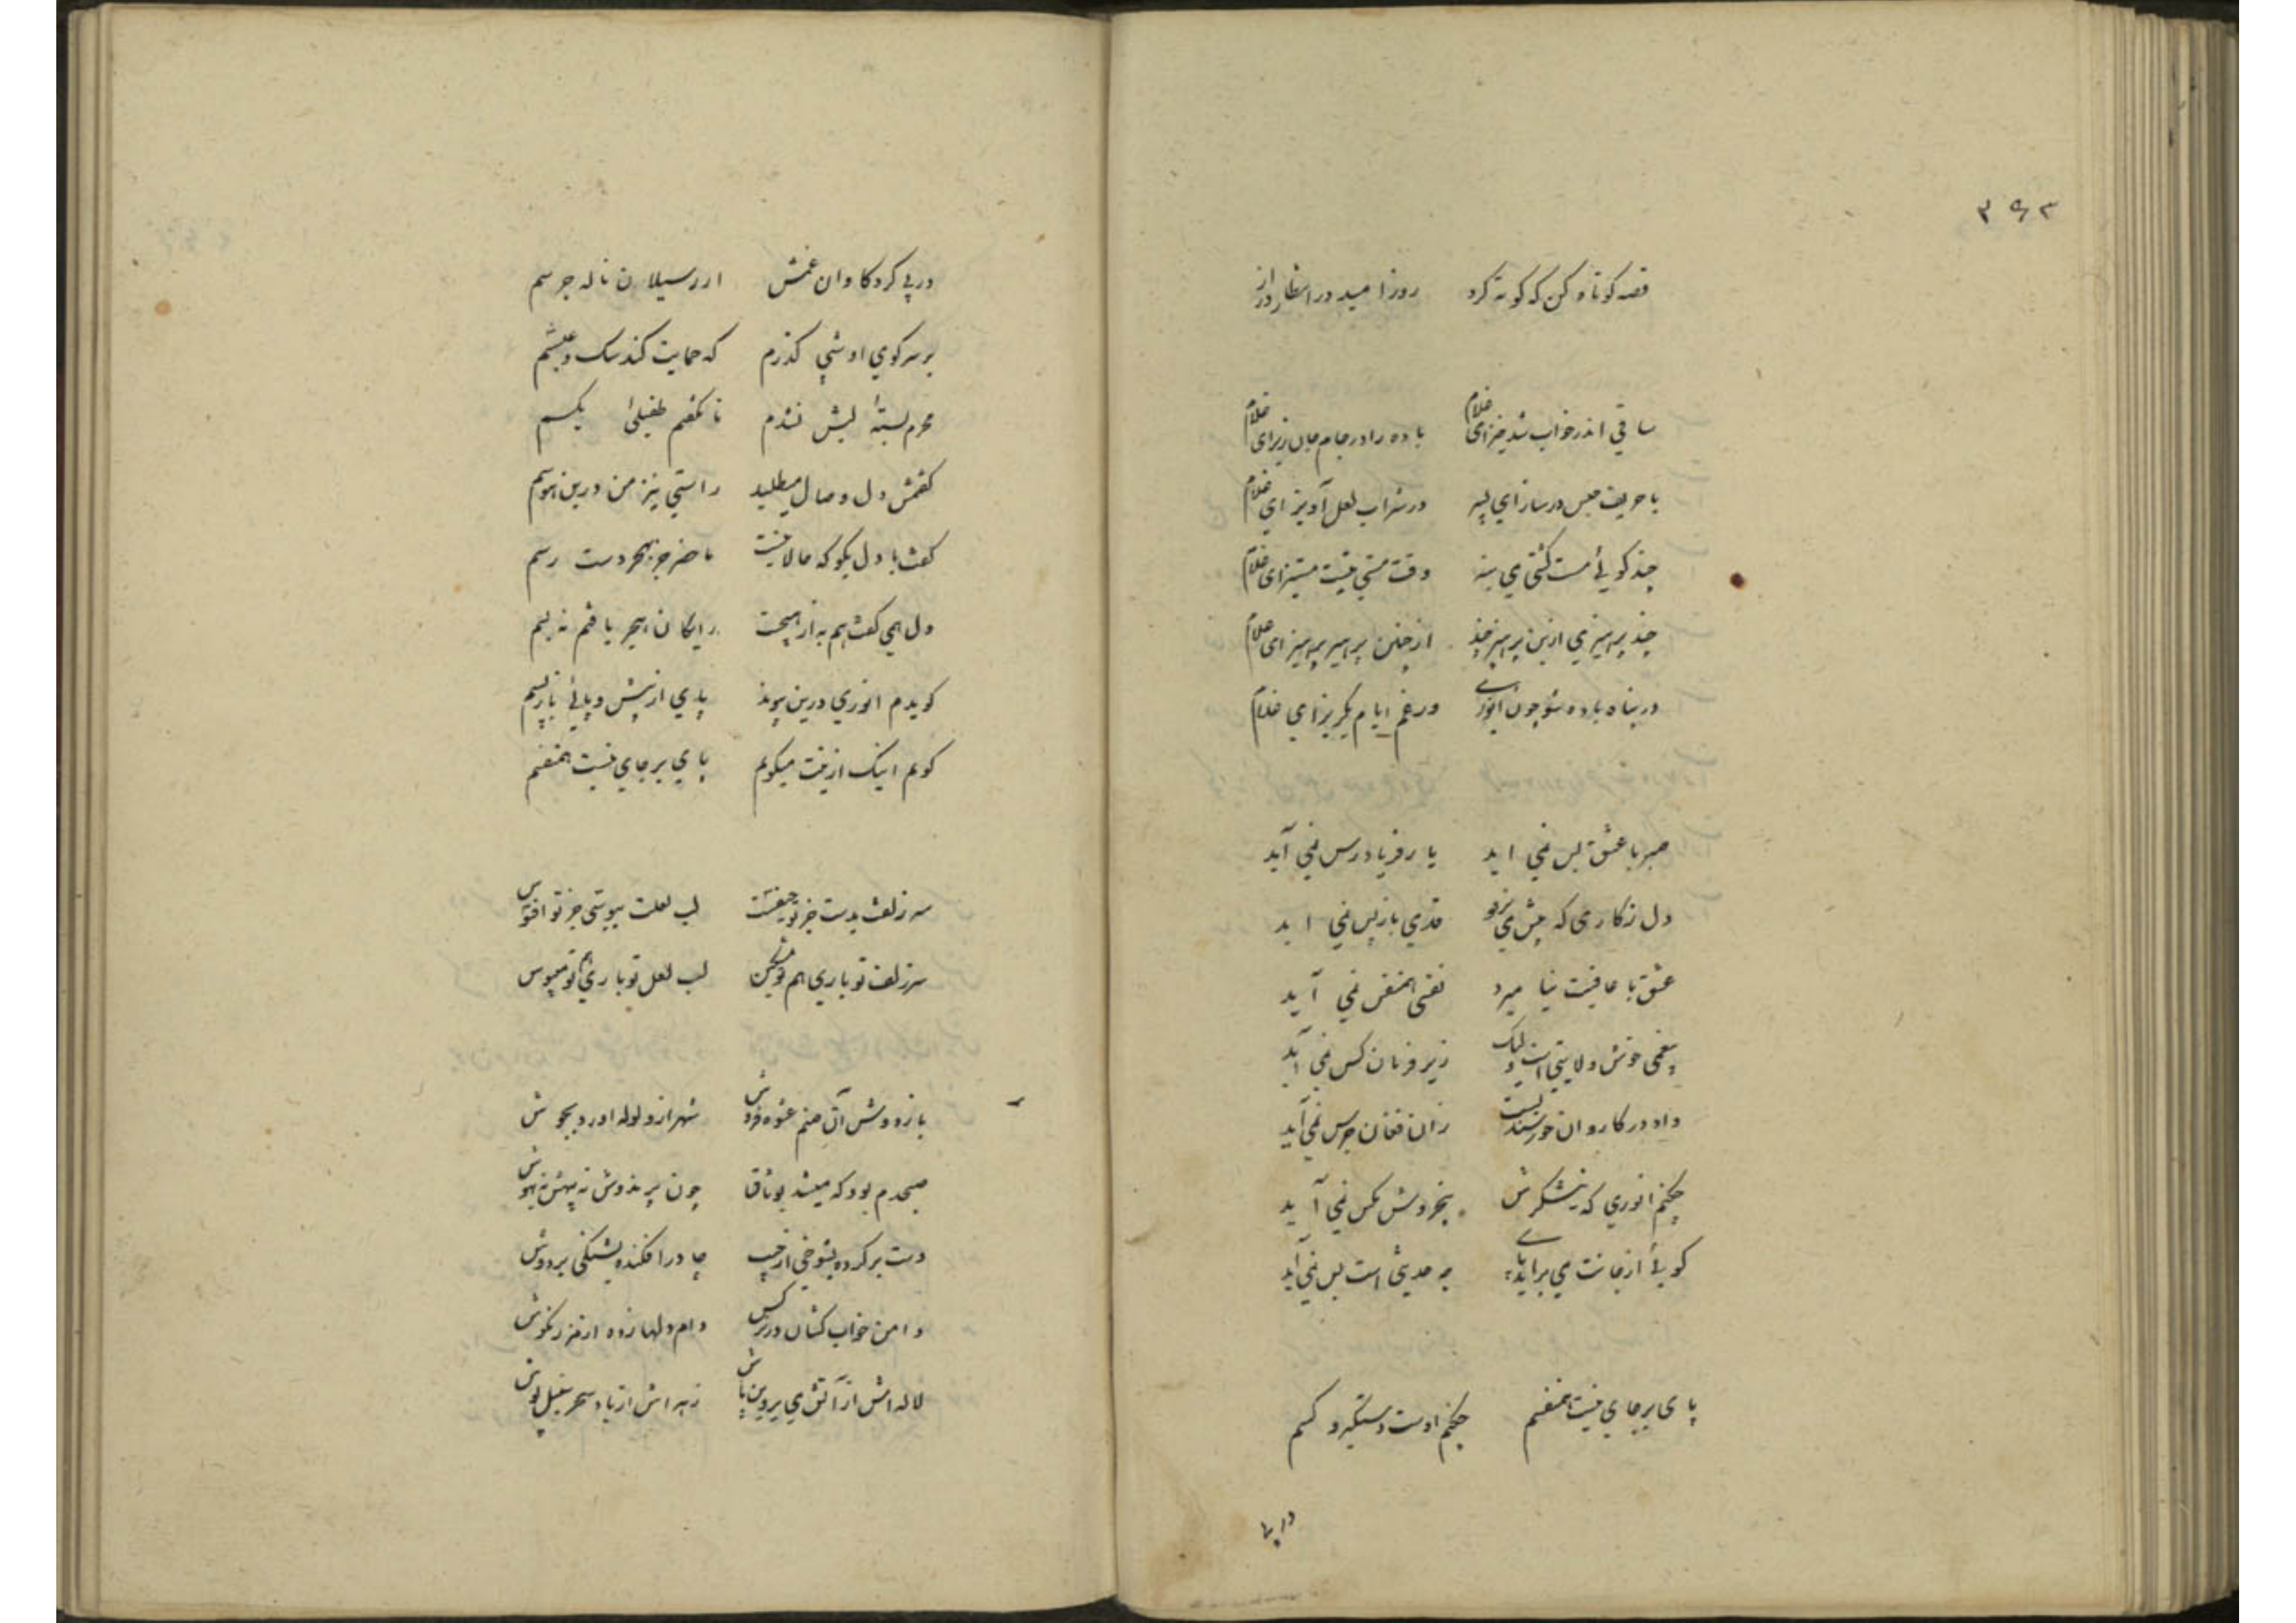 ۳۶۳
قصه کوتاه کن که کوته کرد روز امید در انتظار دراز
ساقی اندر خواب شد خیز ای غلام باده را در جام جان ریز ای غلام
با حریف جنس در ساز ای پسر در شراب لعل آویز ای غلام
چند کوئی مست کشتی می بنه وقت مستی نیست مستیز ای غلام
چند پرهیزی ازین پرهیز چند از چنین پرهیز پرهیز ای غلام
در پناه باده شو چون انوری ورغم ایام بگریز ای غلام
صبر با عشق بس نمی اید یار فریاد رس نمی آید
دل ز کاری که پیش می نرود قدمی باز پس نمی اید
عشق با عافیت نیا میزد نفسی همنفس نمی آید
بیغمی خوش ولایتی است ولیک زیر فرمان کس نمی آید
داد در کاروان خرسندیست زان فغان جرس نمی آید
چکنم انوری که نیشکرش بخروش مکس نمی آید
کوئی از جانت می براید پای چه حدیثی است بس نمی آید
پای بر جای نیست همنفسم چکنم اوست دستگیر و کسم
در پی
در پی کرد کاروان غمش از رسیلان ناله جرسم
بر سر کوی او شبی کذرم که حمایت کند سک و عسسم
محرم بسته لبش نشدم تا نکفتم طفیلی مکسم
کفتمش دل وصال میطلبد راستی نیز من درین هوسم
کفت با دل بکو که حالا نیست حاضر جز بهجر دست رسم
دل همی کفت هم به از هیچست رایکان هجر یافتم نه بسم
کویدم انوری درین پیوند پای از پیش و پای باز پسم
کویم اینک ازینت میکویم پای بر جای نیست همنفسم
سر زلفت بدست جز تو حیفست لب لعلت ببوسی جز تو افسوس
سر زلف تو باری هم تو میکن لب لعل تو باری هم تو میبوس
باز دوش آن صنم عشوه فروش شهر از ولوله اورد بجوش
صبحدم بود که میشد بوثاق چون پرندوش نه بیهش نه بهوش
دست بر کرده بشوخی از جیب چادر افکنده بشنکی بر دوش
دامن خواب کشان در نرکس دام دلها زده از مرزنکوش
لاله اش از آتش می پروین پاش زهره اش از باد سحر سنبل پوش